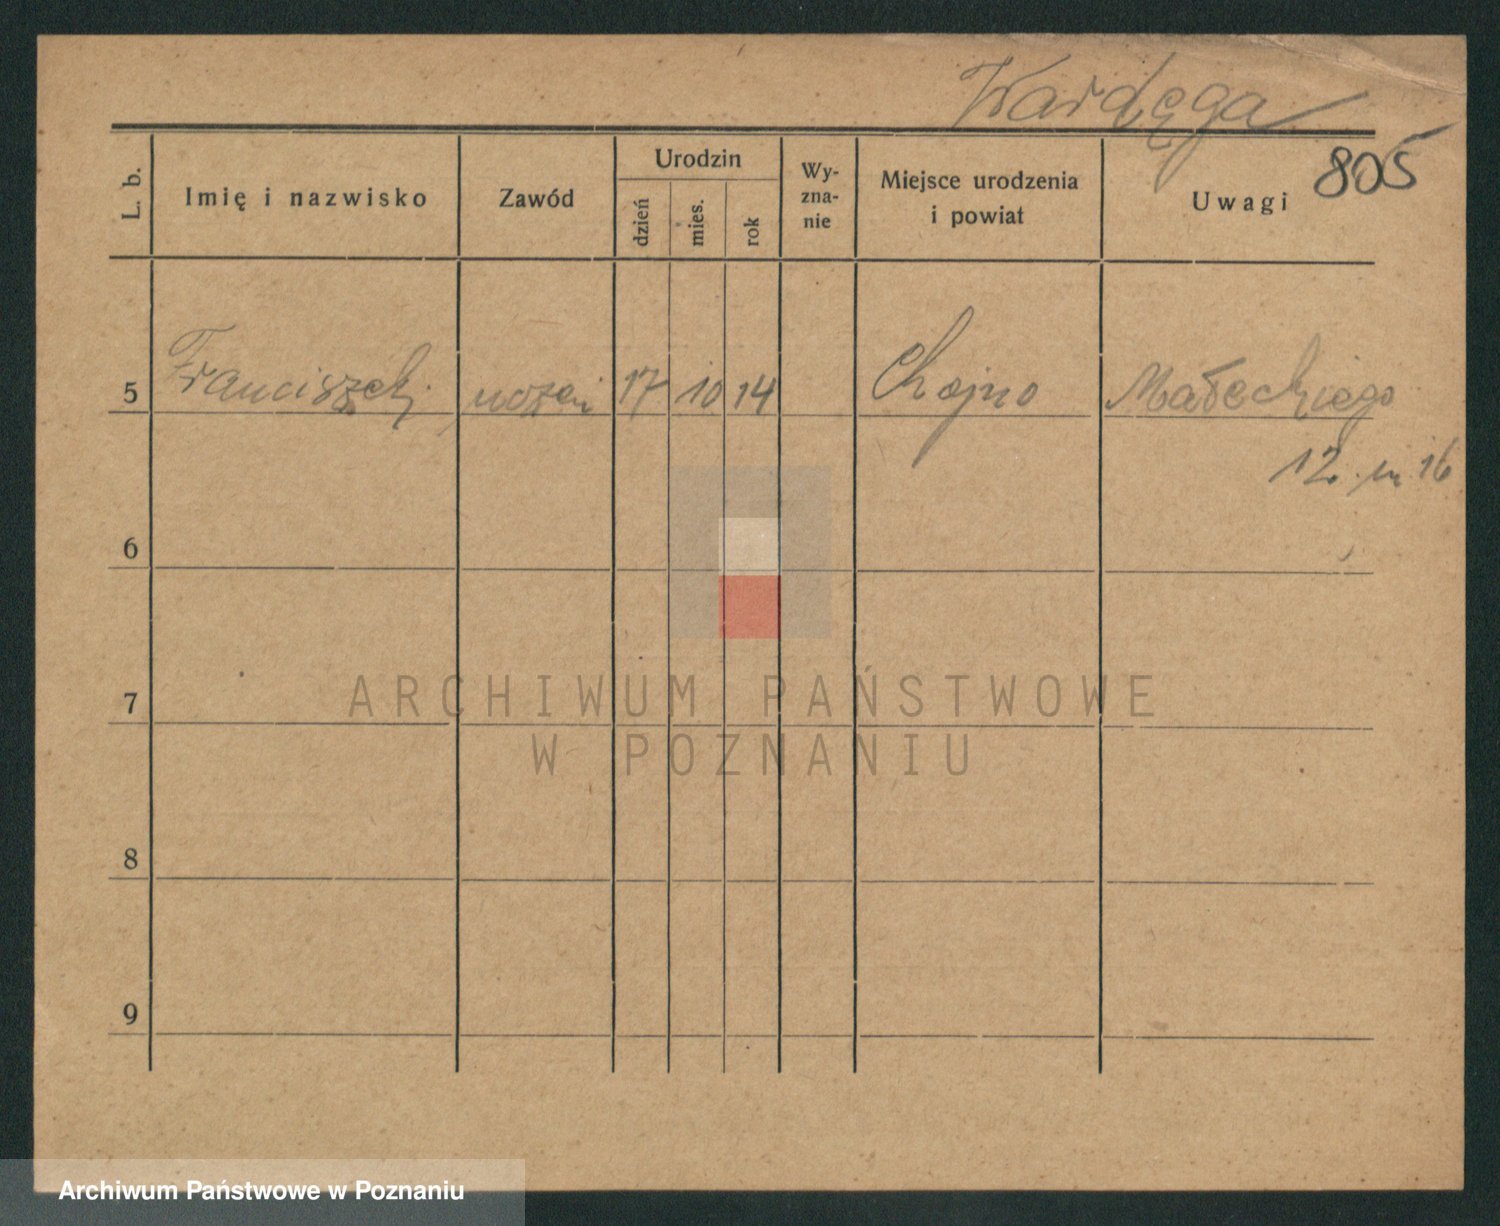 Wardęga
805
L. b.
Imię i nazwisko
Zawód
Urodzin
dzień
mies.
rok
Wy-
zna-
nie
Miejsce urodzenia
i powiat
Uwagi
5 Franciszek 17 10 14 Chojno Małeckiego
12 m 16
6
7
8
9
ARCHIWUM PAŃSTWOWE
W POZNANIU
Archiwum Państwowe w Poznaniu